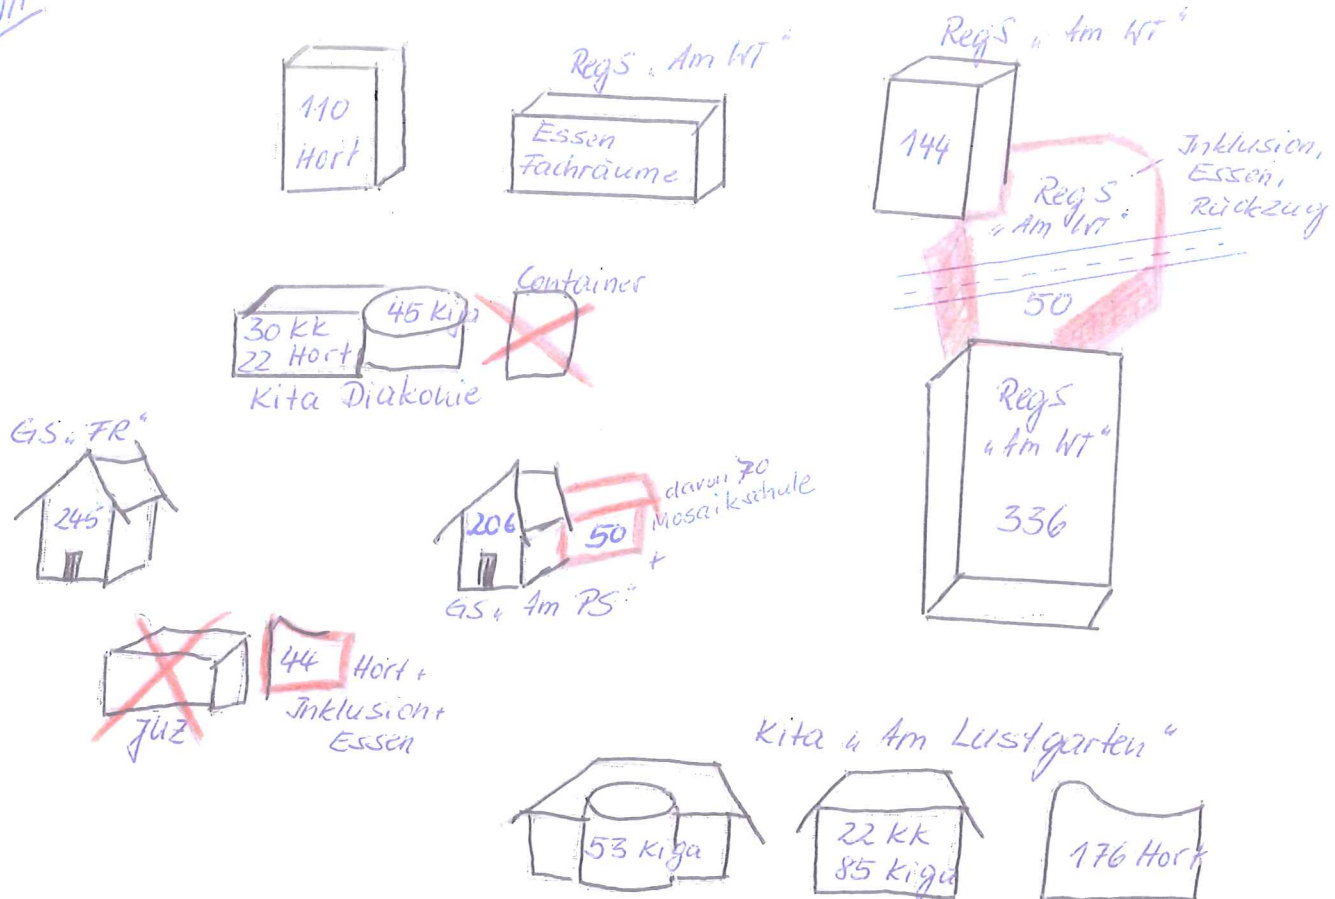 RegS „Am WT“
110
Hort
RegS „Am WT“
Essen
Fachräume
144
Inklusion,
Essen,
Rückzug
RegS
„Am WT“
50
30 KK
22 Hort
45 Kiga
Container
Kita Diakonie
RegS
„Am WT“
336
GS „FR“
245
206
50
davon 70
Mosaikschule
+
GS „Am PS“
JUZ
44
Hort +
Inklusion+
Essen
Kita „Am Lustgarten“
53 Kiga
22 KK
85 Kiga
176 Hort